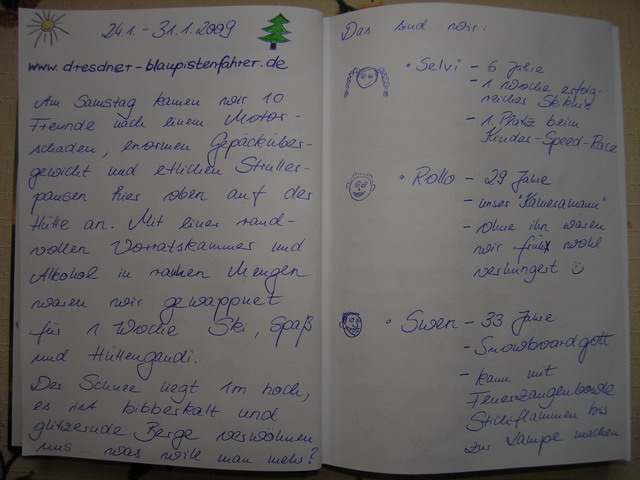 24.1. - 31.1.2009
www.dresdner-blaupistenfahrer.de
Am Samstag kamen wir 10
Freunde nach einem Motor-
schaden, enormen Gepäcküber-
gewicht und etlichen Struller-
pausen hier oben auf der
Hütte an. Mit einer rand-
vollen Vorratskammer und
Alkohol in rauhen Mengen
waren wir gewappnet
für 1 Woche Ski, Spaß
und Hüttengaudi.
Der Schnee liegt 1m hoch,
es ist bibberkalt und
glitzernde Berge verwöhnen
uns was will man mehr?
Das sind wir:
• Selvi - 6 Jahre
- 1 Woche erfolg-
reicher Skikurs
- 1. Platz beim
Kinder-Speed-Race
• Rollo - 29 Jahre
- unser "Kameramann"
- ohne ihn wären
wir wohl
verhungert ☺
• Swen - 33 Jahre
- Snowboardgott
- kann mit
Feuerzangenbowle
Stichflammen bis
zur Lampe machen